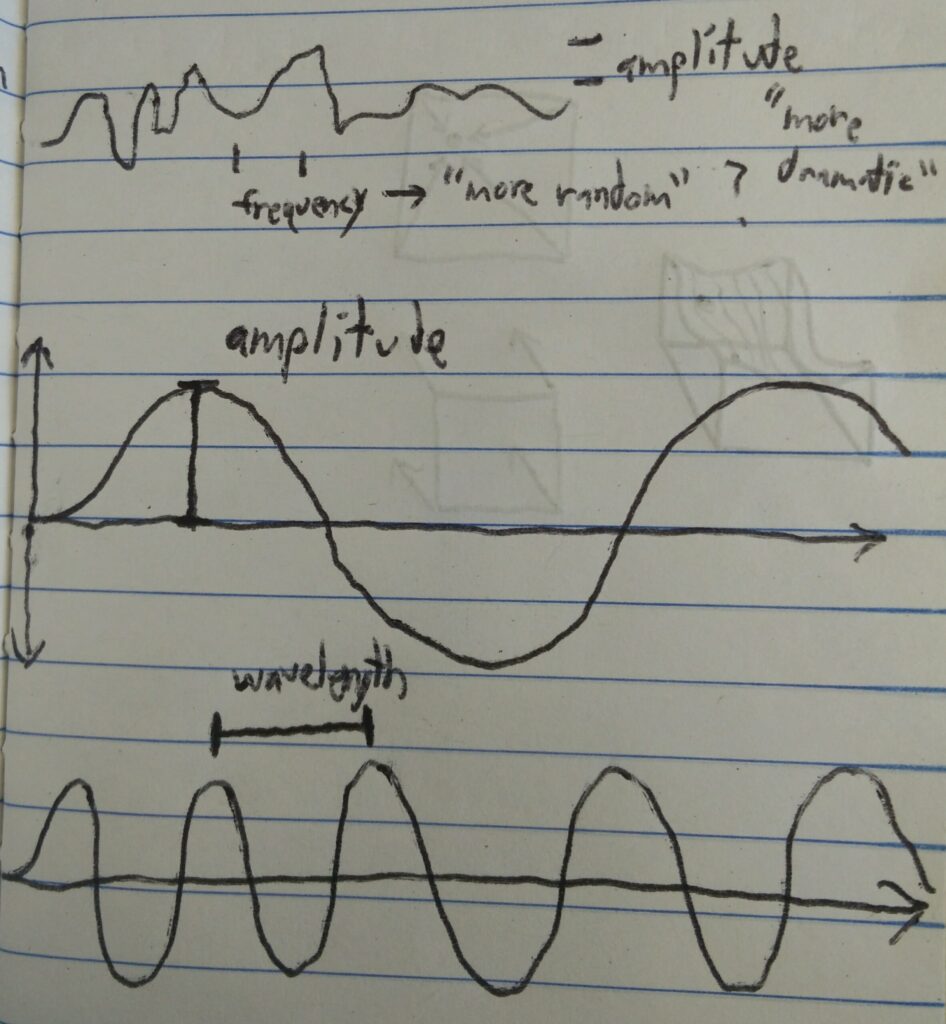 = amplitude
"more
dramatic"
frequency → "more random" ?
amplitude
wavelength